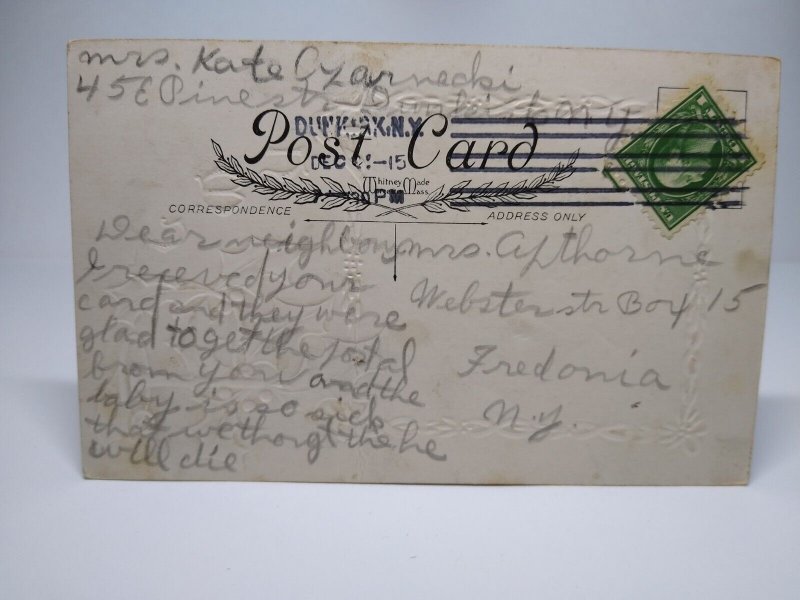 mrs. Kate Czarnecki
45 E Pine str. Dunkirk N.Y
DUNKIRK, N.Y.
Post Card
DEC -15
Whitney Made
Mass.
PM
CORRESPONDENCE
ADDRESS ONLY
Dear neighbour
I receved your
card and they were
glad to get the postal
from you and the
baby is so sick
that we thorgt the he
will die
mrs. Apthorne
Webster str Box 15
Fredonia
N.y.